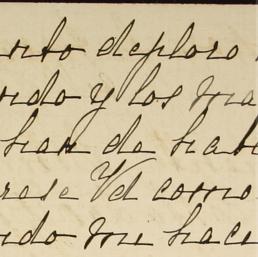 nto deploro
ndo y los ma
han de habe
rese Vd como
ido me hace